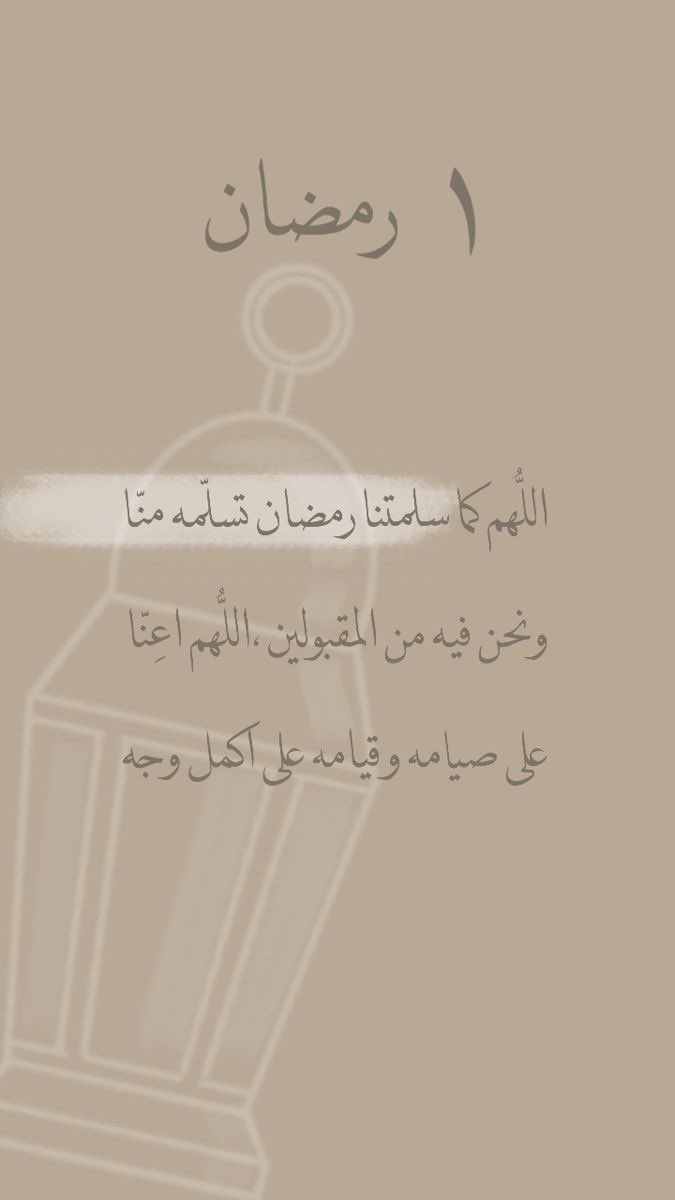 ١ رمضان
اللُّهم كما سلمتنا رمضان تسلّمه منّا
ونحن فيه من المقبولين ،اللُّهم اعِنّا
على صيامه وقيامه على اكمل وجه